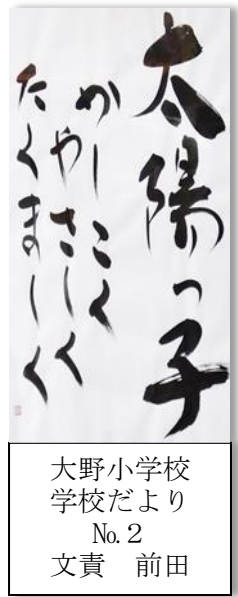 太陽っ子
かしこく
やさしく
たくましく
大野小学校
学校だより
№.2
文責 前田